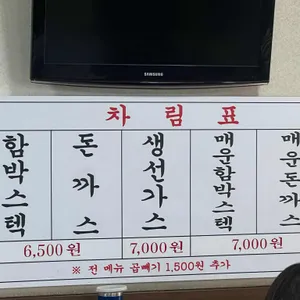 SAMSUNG
차 림 표
함박스텍
돈까스
생선가스
매운함박스텍
매운돈까스
6,500원 7,000원 7,000원
※ 전 메뉴 곱빼기 1,500원 추가